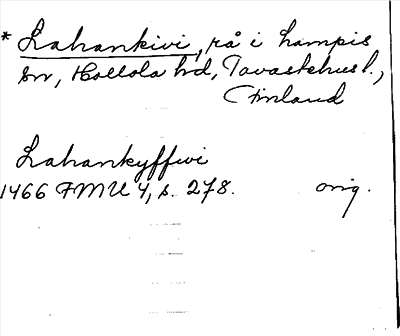 * Lahankivi, rå i Lampis
sn, Hollola hd, Tavastehus l.,
Finland
Lahankyffwi
1466 FMU 4, s. 278. orig.